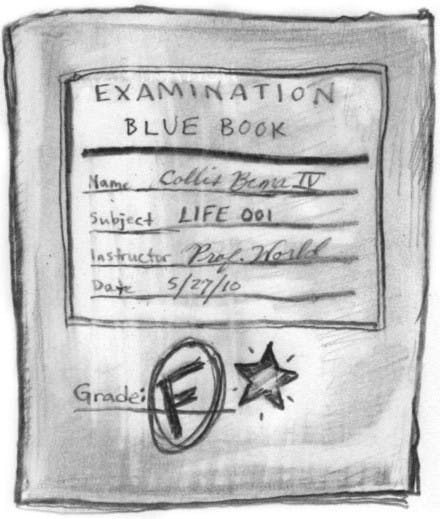 EXAMINATION
BLUE BOOK
Name Collis Bema IV
Subject LIFE 001
Instructor Prof. World
Date 5/27/10
Grade: F